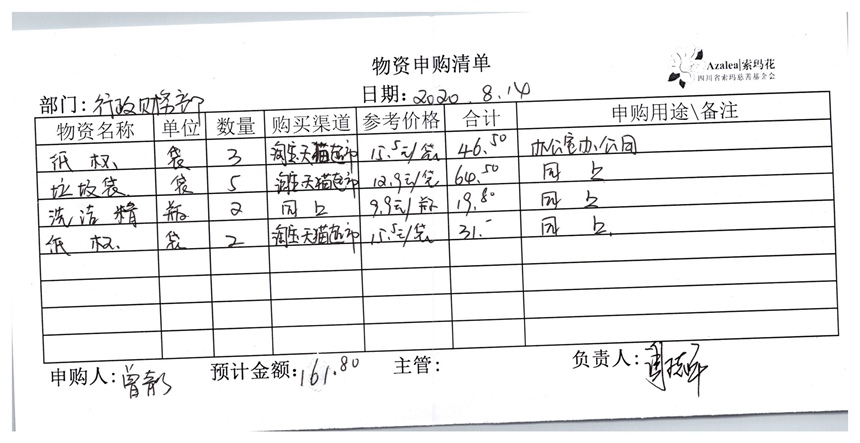 物资申购清单
Azalea|索玛花
四川省索玛慈善基金会
部门：行政财务部 日期：2020.8.14
物资名称 单位 数量 购买渠道 参考价格 合计 申购用途\备注
纸杯 袋 3 淘宝天猫超市 15.5元/袋 46.50 办公室办公用
垃圾袋 袋 5 淘宝天猫超市 12.9元/袋 64.50 同上
洗洁精 瓶 2 同上 9.9元/瓶 19.80 同上
纸杯 袋 2 淘宝天猫超市 15.5元/袋 31.- 同上
申购人：曾 预计金额：161.80 主管： 负责人：